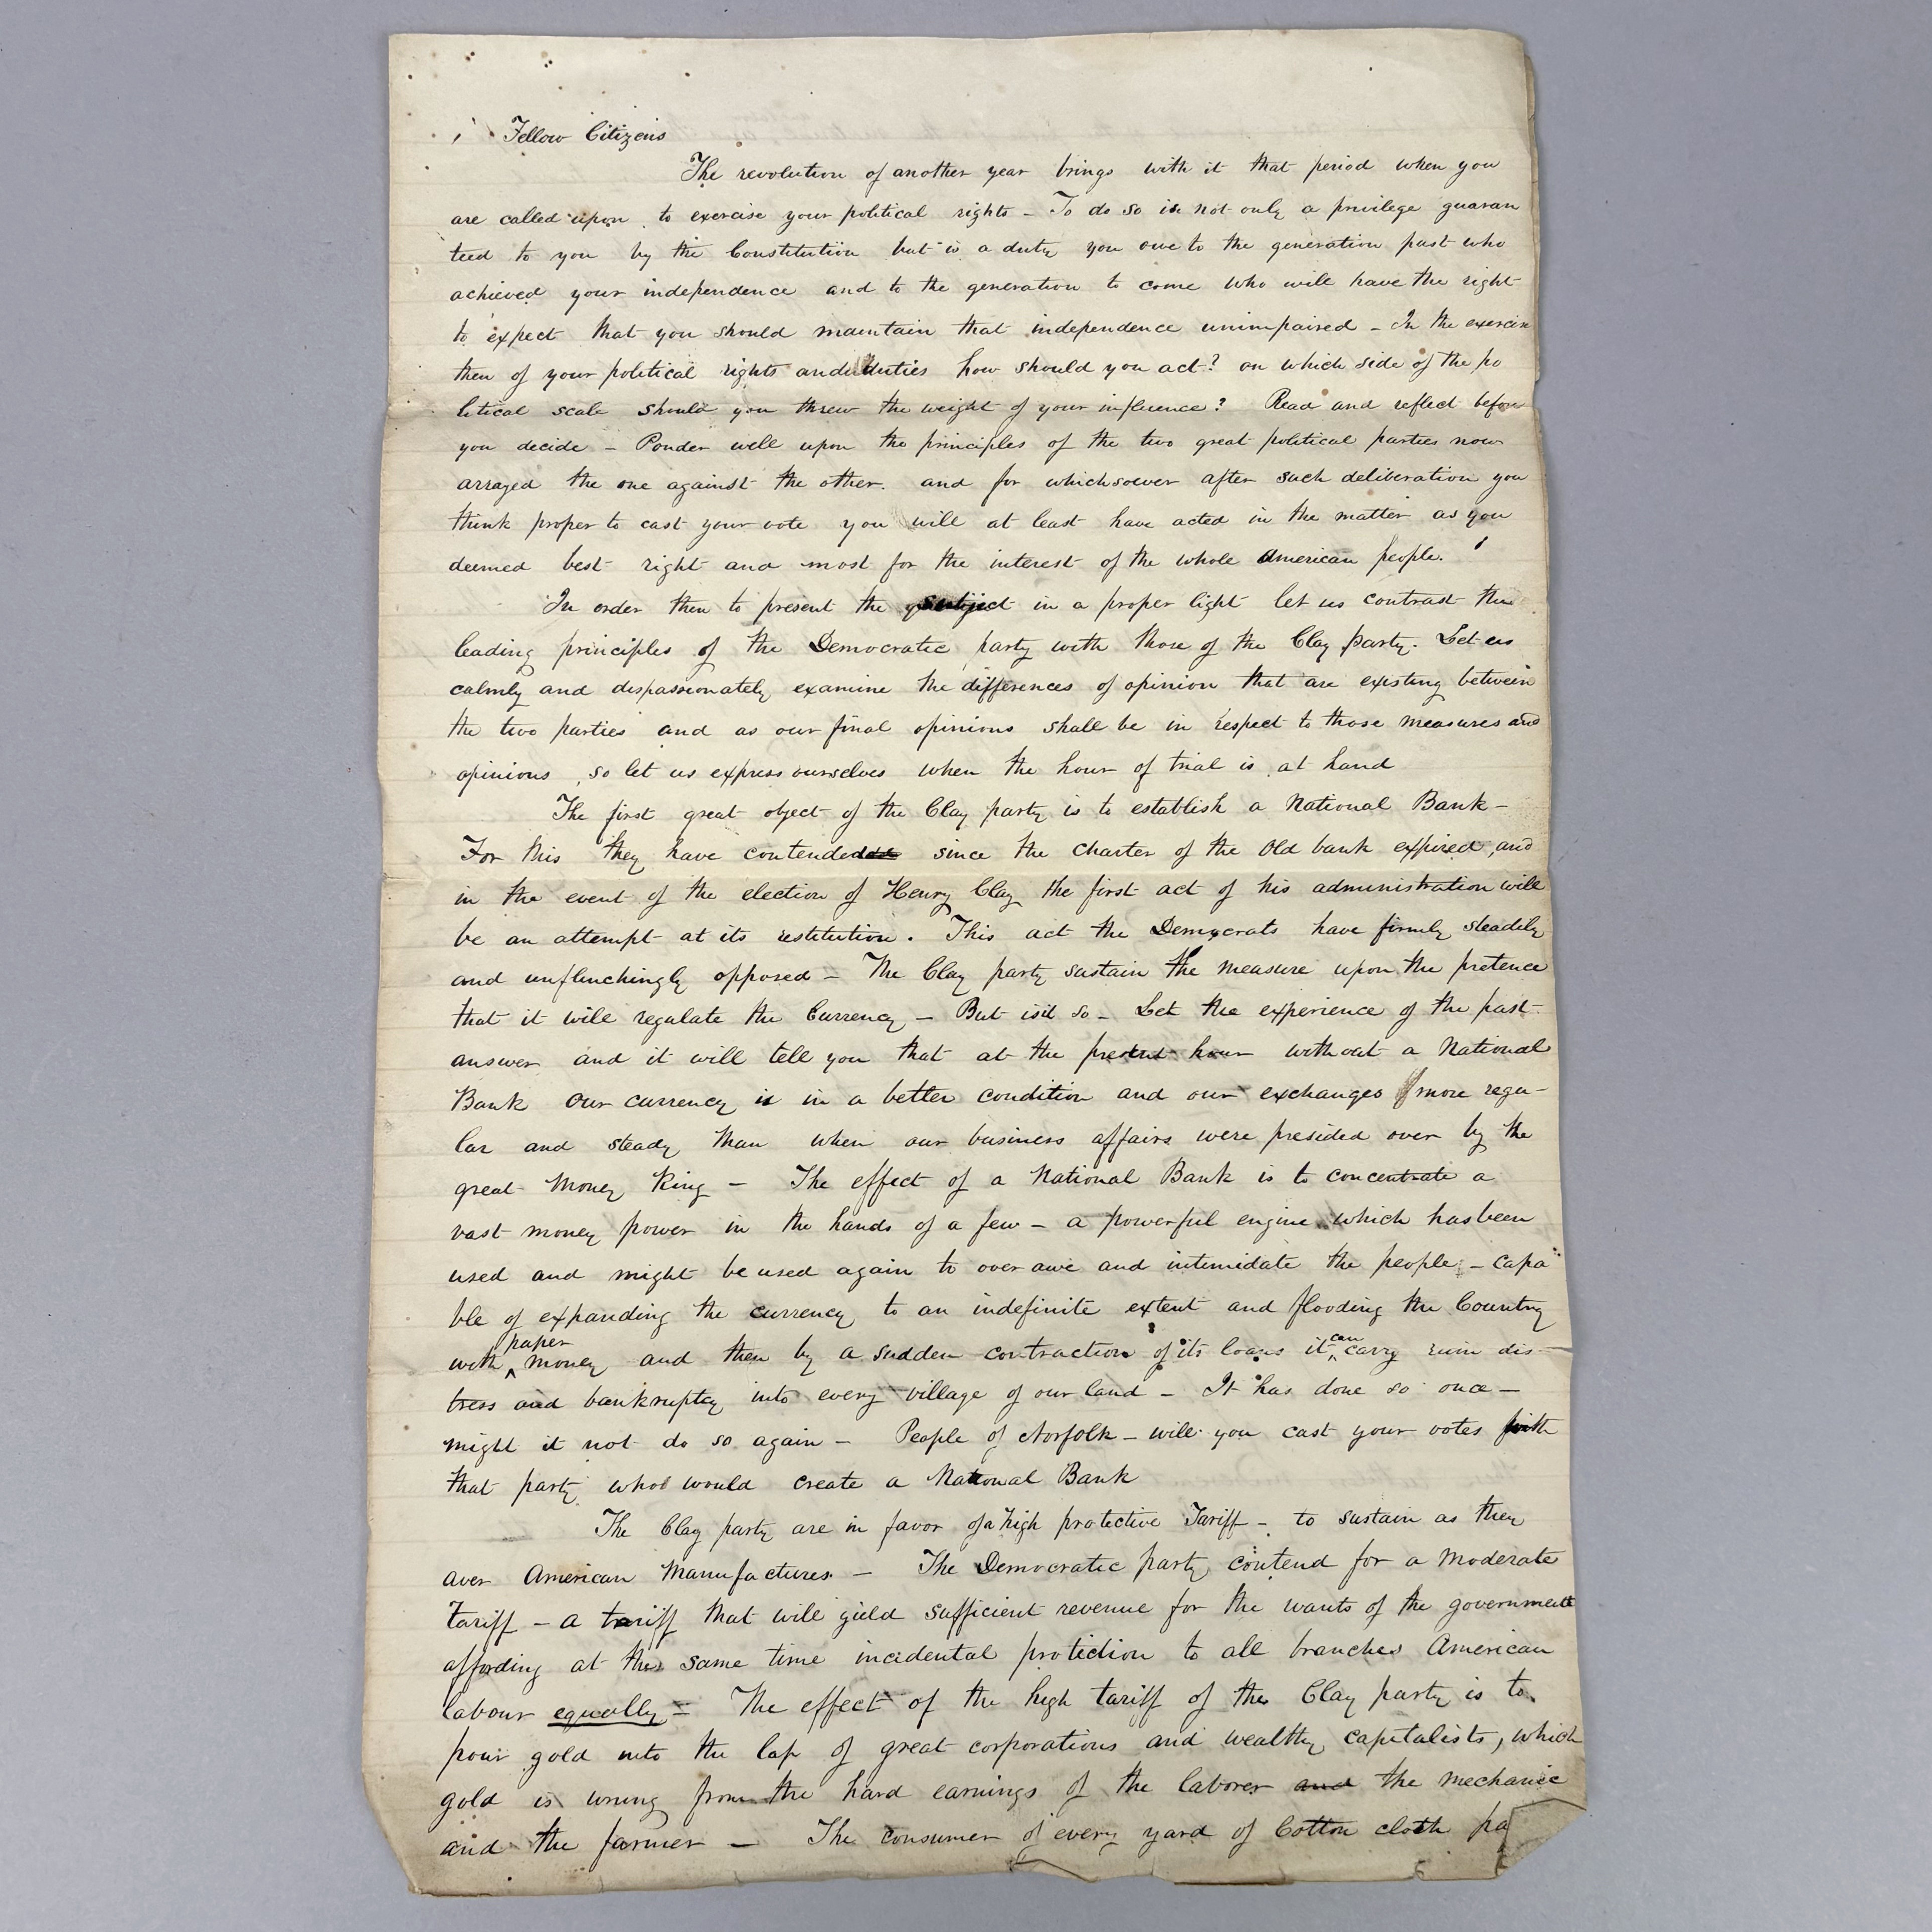 Fellow Citizens
The revolution of another year brings with it that period when you
are called upon to exercise your political rights - To do so is not only a privilege guaran
teed to you by the Constitution but is a duty you owe to the generation past who
achieved your independence and to the generation to come who will have the right
to expect that you should maintain that independence unimpaired - In the exercise
then of your political rights and duties how should you act? on which side of the po
litical scale should you threw the weight of your influence? Read and reflect before
you decide - Ponder well upon the principles of the two great political parties now
arrayed the one against the other. and for whichsoever after such deliberation you
think proper to cast your vote you will at least have acted in the matter as you
deemed best right and most for the interest of the whole American people.
In order then to present the subject in a proper light let us contrast the
leading principles of the Democratic party with those of the Clay party. Let us
calmly and dispassionately examine the differences of opinion that are existing between
the two parties and as our final opinions shall be in respect to those measures and
opinions, so let us express ourselves when the hour of trial is at hand
The first great object of the Clay party is to establish a National Bank -
For this they have contended since the charter of the Old bank expired, and
in the event of the election of Henry Clay the first act of his administration will
be an attempt at its restitution. This act the Democrats have firmly steadily
and unflinchingly opposed - The Clay party sustain the measure upon the pretence
that it will regulate the Currency - But is it so - Let the experience of the past
answer and it will tell you that at the present hour without a National
Bank our currency is in a better condition and our exchanges more regu-
lar and steady than when our business affairs were presided over by the
great Money King - The effect of a National Bank is to concentrate a
vast money power in the hands of a few - a powerful engine which has been
used and might be used again to over awe and intimidate the people - capa
ble of expanding the currency to an indefinite extent and flooding the Country
with paper money and then by a sudden contraction of its loans it can carry ruin dis-
tress and bankruptcy into every village of our land - It has done so once -
might it not do so again - People of Norfolk - will you cast your votes with
that party who would create a National Bank
The Clay party are in favor of a high protective Tariff - to sustain as they
aver American Manufactures. - The Democratic party contend for a moderate
tariff - a tariff that will yield sufficient revenue for the wants of the government
affording at the same time incidental protection to all branches American
labour equally - The effect of the high tariff of the Clay party is to
pour gold into the lap of great corporations and wealthy capitalists, which
gold is wrung from the hard earnings of the laborer and the mechanic
and the farmer - The consumer of every yard of Cotton cloth pa